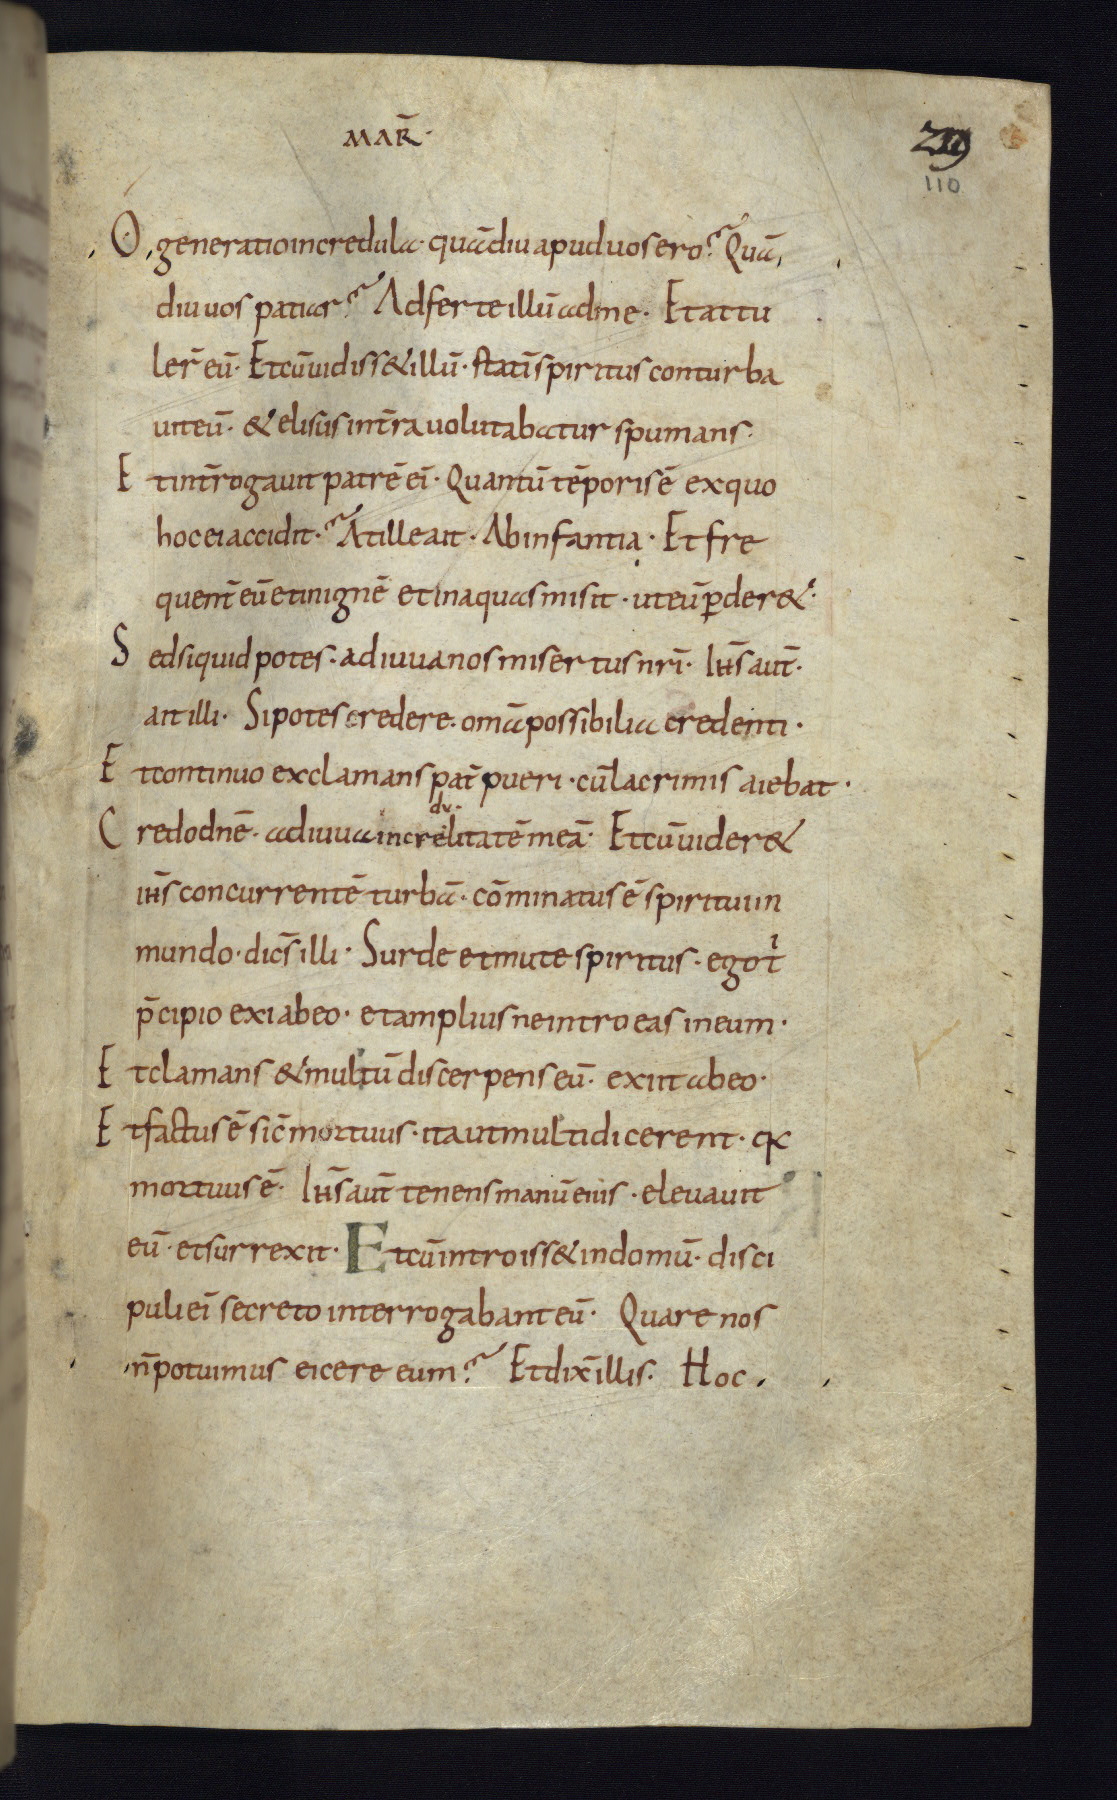 MAR̄·
219
110
O generatio incredula· quādiu apud uos ero? Quā
diu uos patiar? Adferte illū ad me· Et attu
ler̄ eū· Et cū uidiss& illū· statī spiritus conturba
uit eū· & elisus int̄ra uolutabatur spumans·
Et int̄rogauit patrē eī· Quantū tēporis ē ex quo
hoc ei accidit·? At ille ait· Ab infantia· Et fre
quent̄ eū et in ignē et in aquas misit· ut eū p̄der&·
Sed si quid potes· adiuua nos misertus nr̄i· Ihs̄ aut̄·
ait illi· Si potes credere· omā possibilia credenti·
Et continuo exclamans pat̄ pueri· cū lacrimis aiebat·
du·
Credo dnē· adiuua increlitatē meā· Et cū uider&
ihs̄ concurrentē turbā· cōminatus ē spiritui in
mundo· dics̄ illi· Surde et mute spiritus· ego t̄ i
p̄cipio exi ab eo· et amplius ne introeas in eum·
Et clamans & multū discerpens eū· exiit ab eo·
Et factus ē sic̄ mortuus· ita ut multi dicerent· qꝛ
mortuus ē· Ihs̄ aut̄ tenens manū eius· eleuauit
eū· et surrexit· Et cū introiss& in domū· disci
puli eī secreto interrogabant eū· Quare nos
n̄ potuimus eicere eum? Et dix̄ illis· Hoc